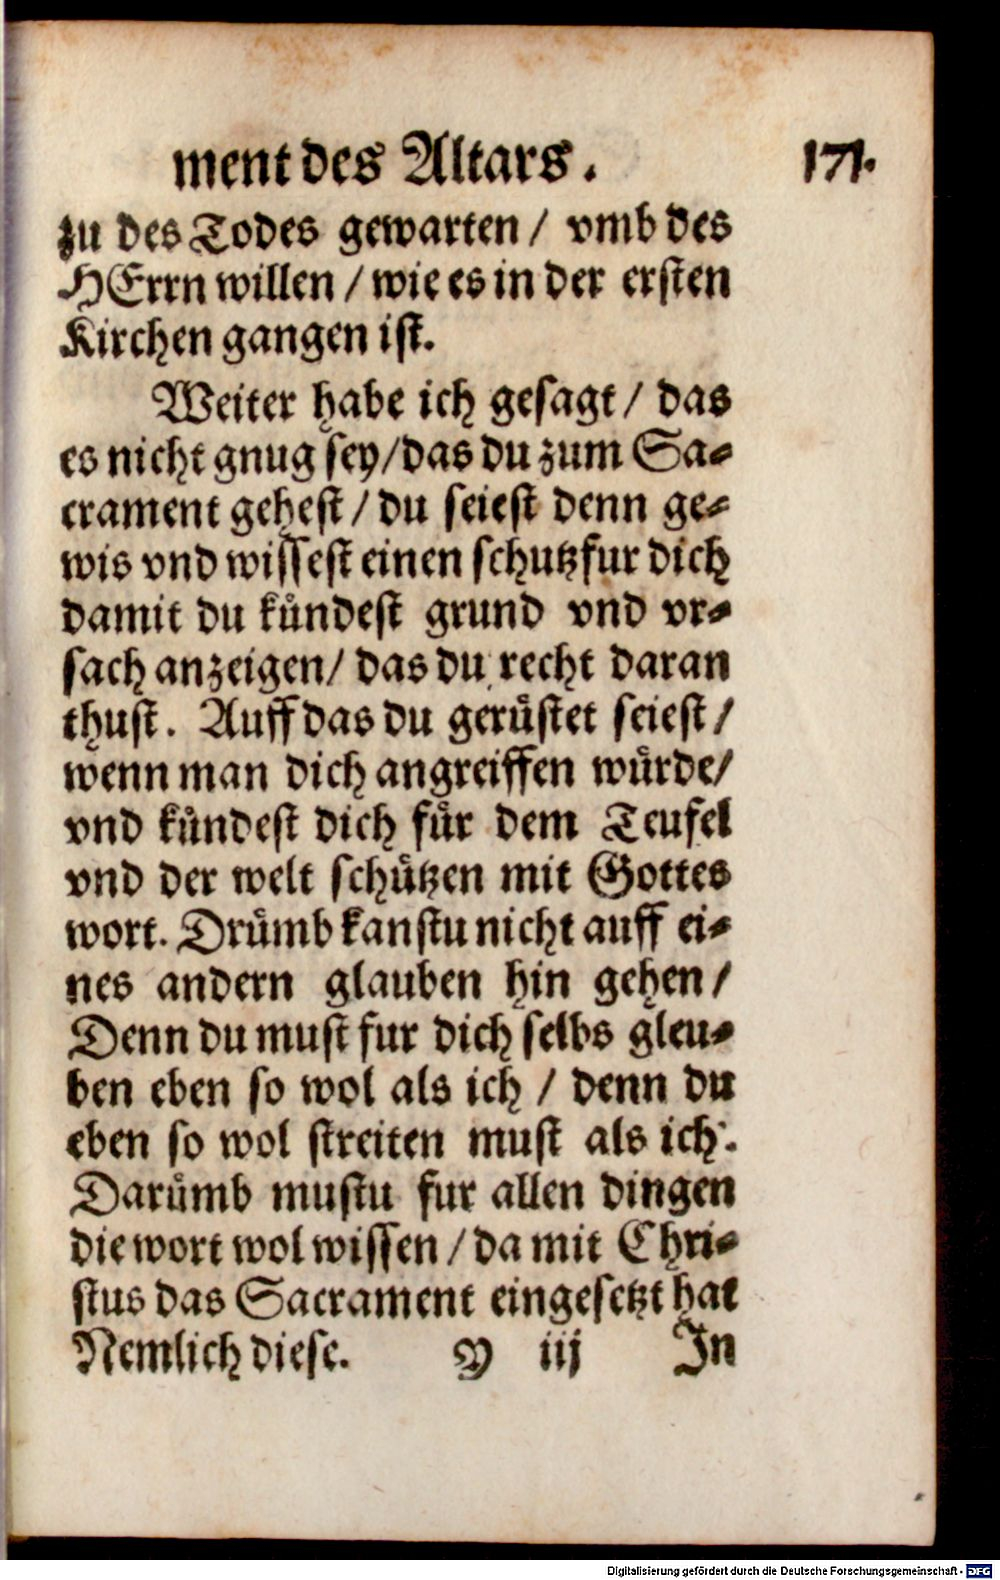 ment des Altars. 171.
zu des Todes gewarten / vmb des
HErrn willen / wie es in der ersten
Kirchen gangen ist.
Weiter habe ich gesagt / das
es nicht gnug sey / das du zum Sa-
crament gehest / du seiest denn ge-
wis vnd wissest einen schutz fur dich
damit du kuͤndest grund vnd vr-
sach anzeigen / das du recht daran
thust. Auff das du geruͤstet seiest /
wenn man dich angreiffen wuͤrde /
vnd kuͤndest dich fuͤr dem Teufel
vnd der welt schuͤtzen mit Gottes
wort. Druͤmb kanstu nicht auff ei-
nes andern glauben hin gehen /
Denn du must fur dich selbs gleu-
ben eben so wol als ich / denn du
eben so wol streiten must als ich.
Daruͤmb mustu fur allen dingen
die wort wol wissen / da mit Chri-
stus das Sacrament eingesetzt hat
Nemlich diese. Y iij In
Digitalisierung gefördert durch die Deutsche Forschungsgemeinschaft - DFG